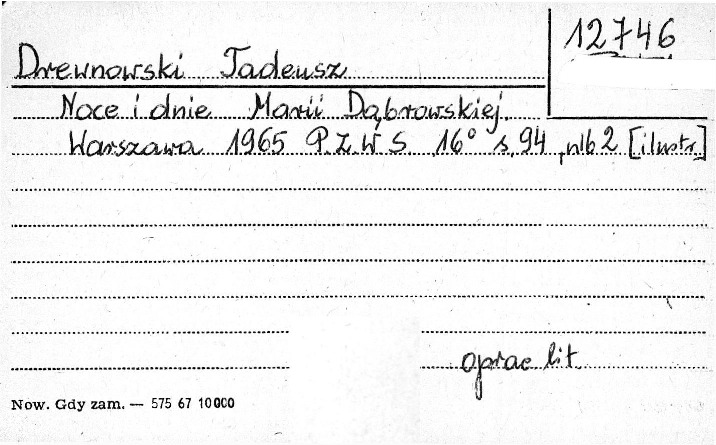 12746
Drewnowski Tadeusz
Noce i dnie Marii Dąbrowskiej.
Warszawa 1965 P.Z.W.S. 16° s. 94, nlb 2 [ilustr.]
oprac lit.
Now. Gdy zam. — 575 67 10000